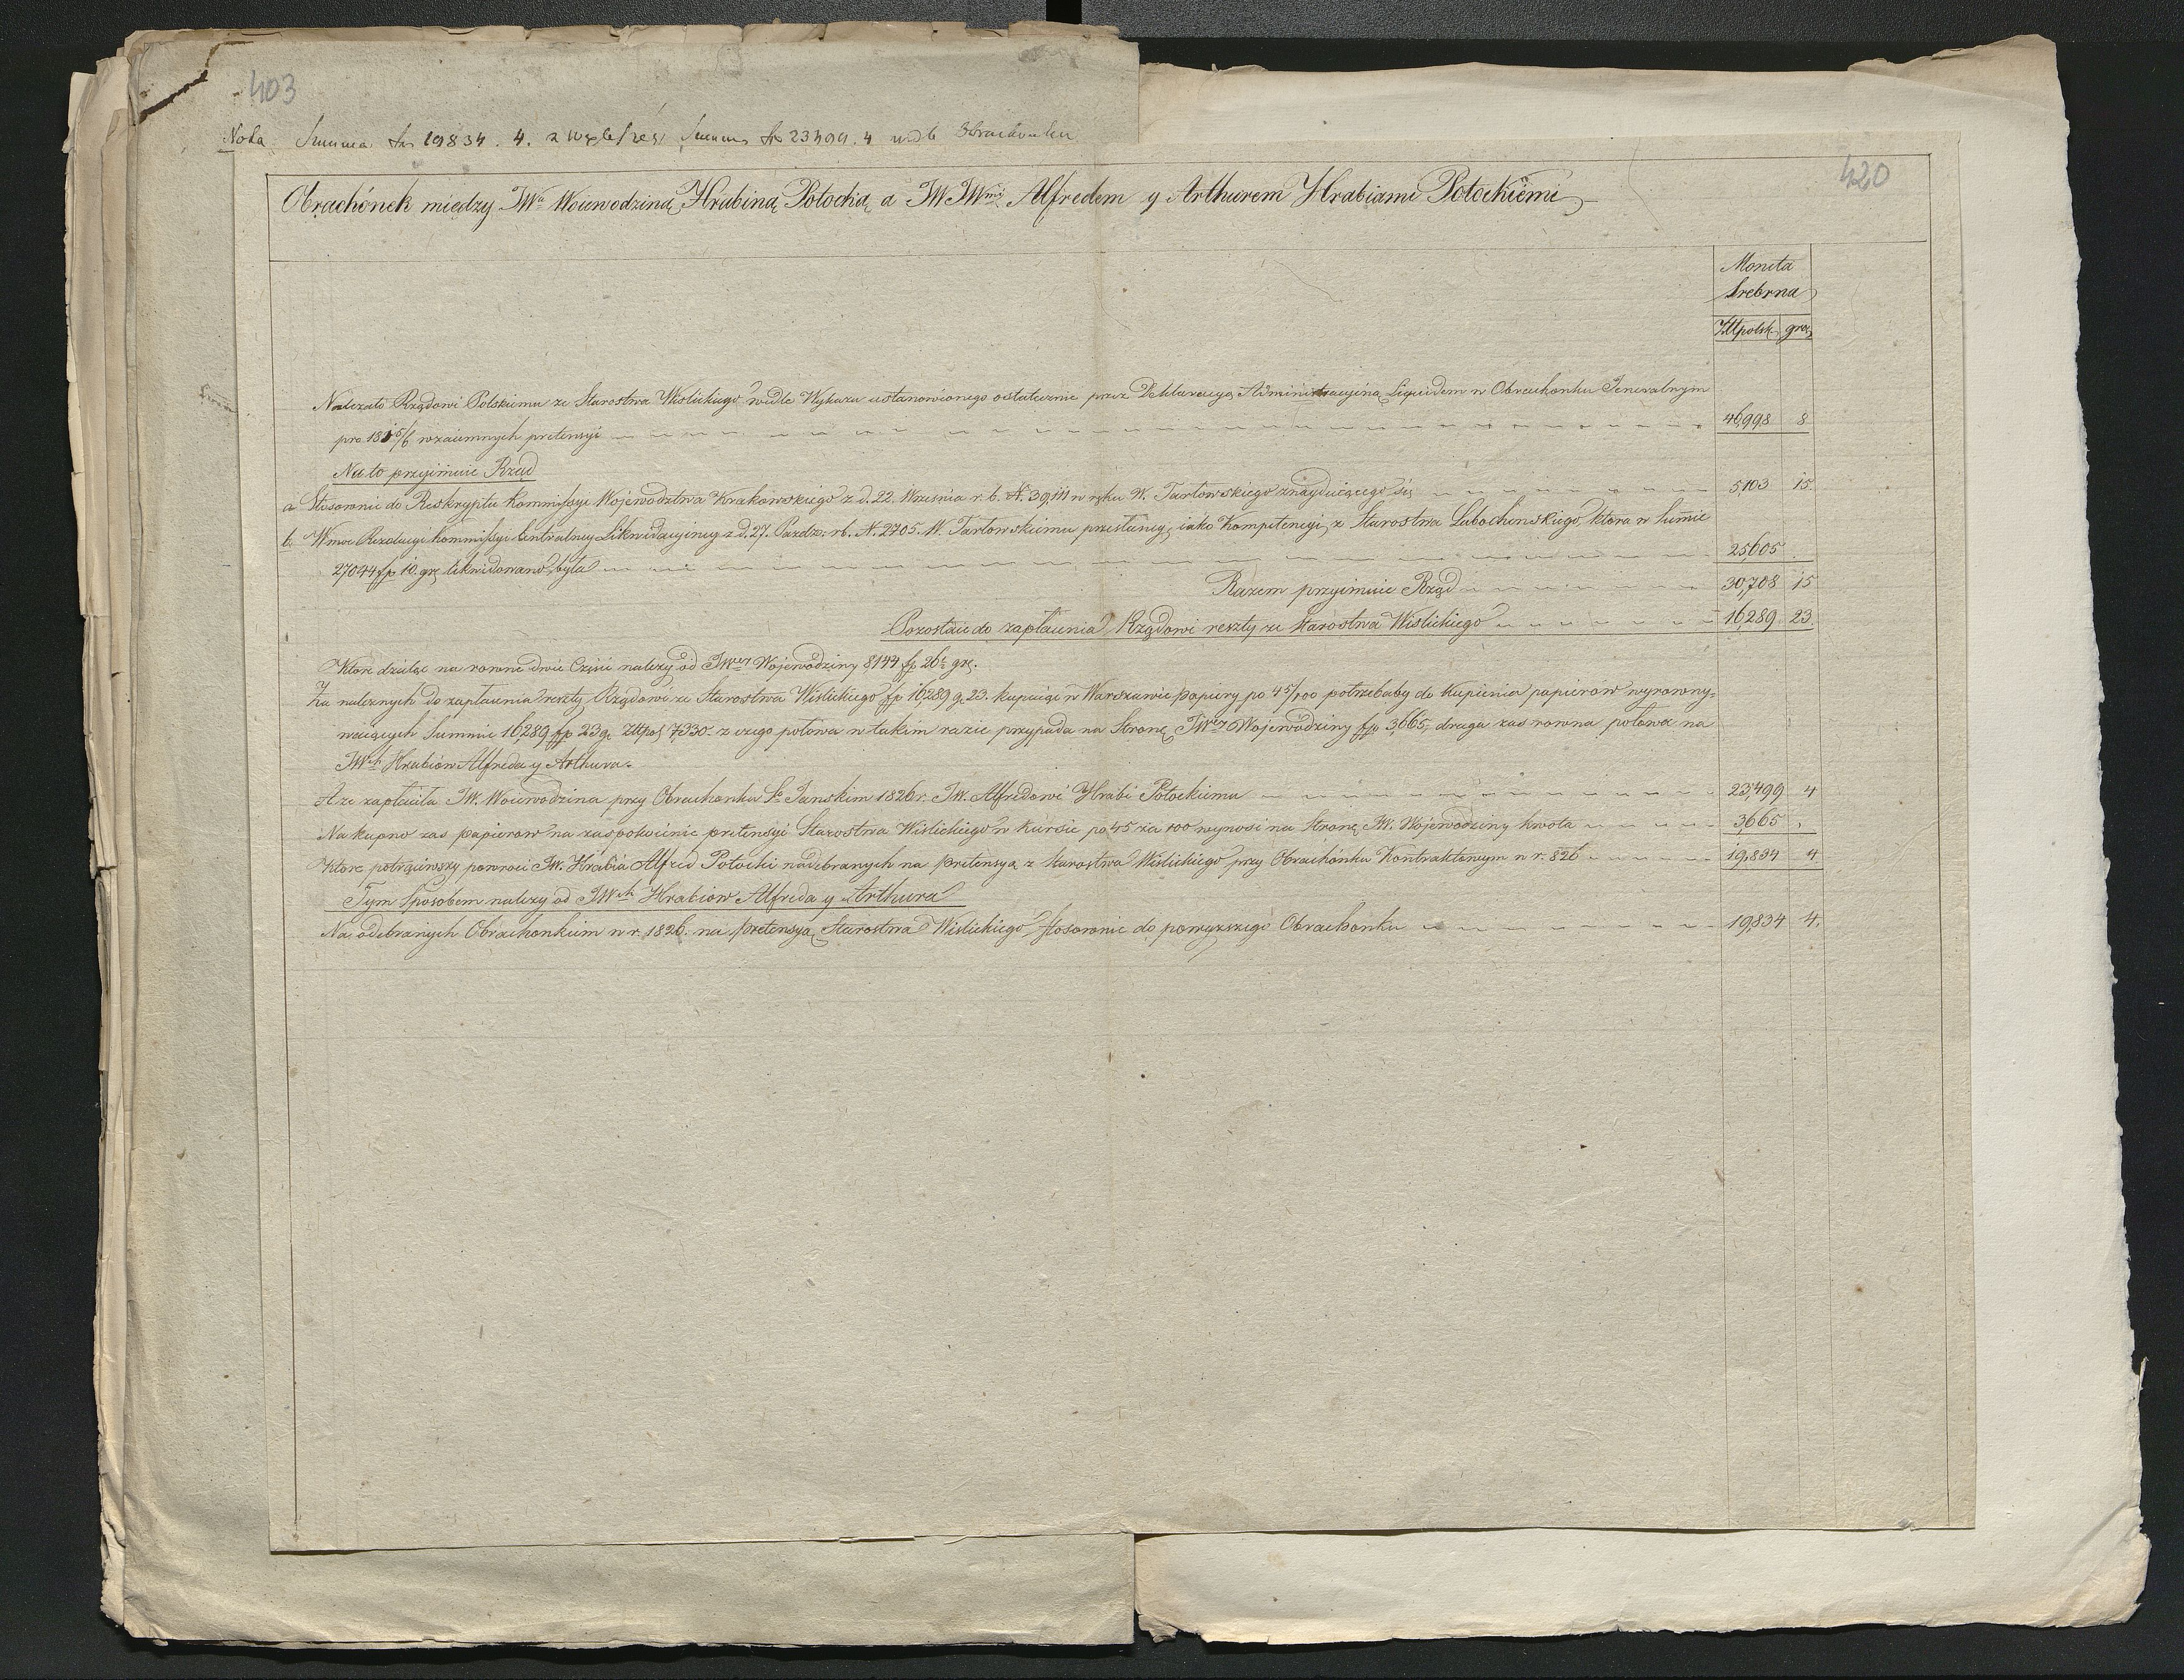 403
Nota Summa fp 19834. 4. z większej Summy fp 23499. 4 wedle Obrachunku
420
Obrachónek między JWą Woiewodziną Hrabiną Potocką a JWJWmi Alfredem y Arthurem Hrabiami Potockiemi
Moneta
Srebrna
Złtpolsk grę
Należało Rządowi Polskiemu ze Starostwa Wislickiego wedle Wykazu ustanowionego ostatecznie przez Deklaracyą Administracyiną Liquidem w Obrachonku Jeneralnym
pro 1815/6 wzaiemnych pretensyi 46,998 8
Na to przyimuie Rząd
a Stosownie do Reskryptu Kommissyi Wojewodztwa Krakowskiego z d. 22. Wrzesnia r. b. N. 39,111 w ręku W. Tarłowskiego znayduiącego się 5,103 15.
b. Wmoc Rezolucyi Kommissyi Centralney Likwidacyiney z d. 27. Pazdz: rb. N. 2705. W. Tarłowskiemu przesłaney, iako Kompetencyi z Starostwa Lubochinskiego, ktora w Summie
27044 fp 10. grę likwidowano była 25,605 .
Razem przyimuie Rząd 30,708 15
Pozostaie do zapłacenia Rządowi reszty ze Starostwa Wislickiego 16,289 23.
Ktore dzieląc na rowne dwie Części należy od JWey Wojewodziny 8144 fp 26½ grę.
Za należnych do zapłacenia reszty Rządowi ze Starostwa Wislickiego fp 16,289 g. 23. kupuiąc w Warszawie papiery po 45/100 potrzebaby do Kupienia papierów wyrowny-
waiących Summie 16,289 fp 23 g. Złtpol 7330.- z czego połowa w takim razie przypada na Stronę JWey Wojewodziny fp 3,665, druga zas rowna połowa na
JWch Hrabiów Alfreda y Arthura.
A ze zapłaciła JW. Woiewodzina przy Obrachonku So Janskim 1826 r. JW. Alfredowi Hrabi Potockiemu 23,499 4
Na kupno zas papierow na zaspokoienie pretensyi Starostwa Wislickiego w kursie po 45 za 100 wynosi na Stronę JW. Wojewodziny kwota 3,665 .
Ktore potrąciwszy powroci JW. Hrabia Alfred Potocki nadebranych na pretensyą z Starostwa Wislickiego przy Obrachónku Kontraktowym w r. 826 19,834 4
Tym Sposobem należy od JWch Hrabiow Alfreda y Arthura
Na odebranych Obrachonkiem w r. 1826. na pretensyą Starostwa Wislickiego, stosownie do powyższego Obrachonku 19,834 4.